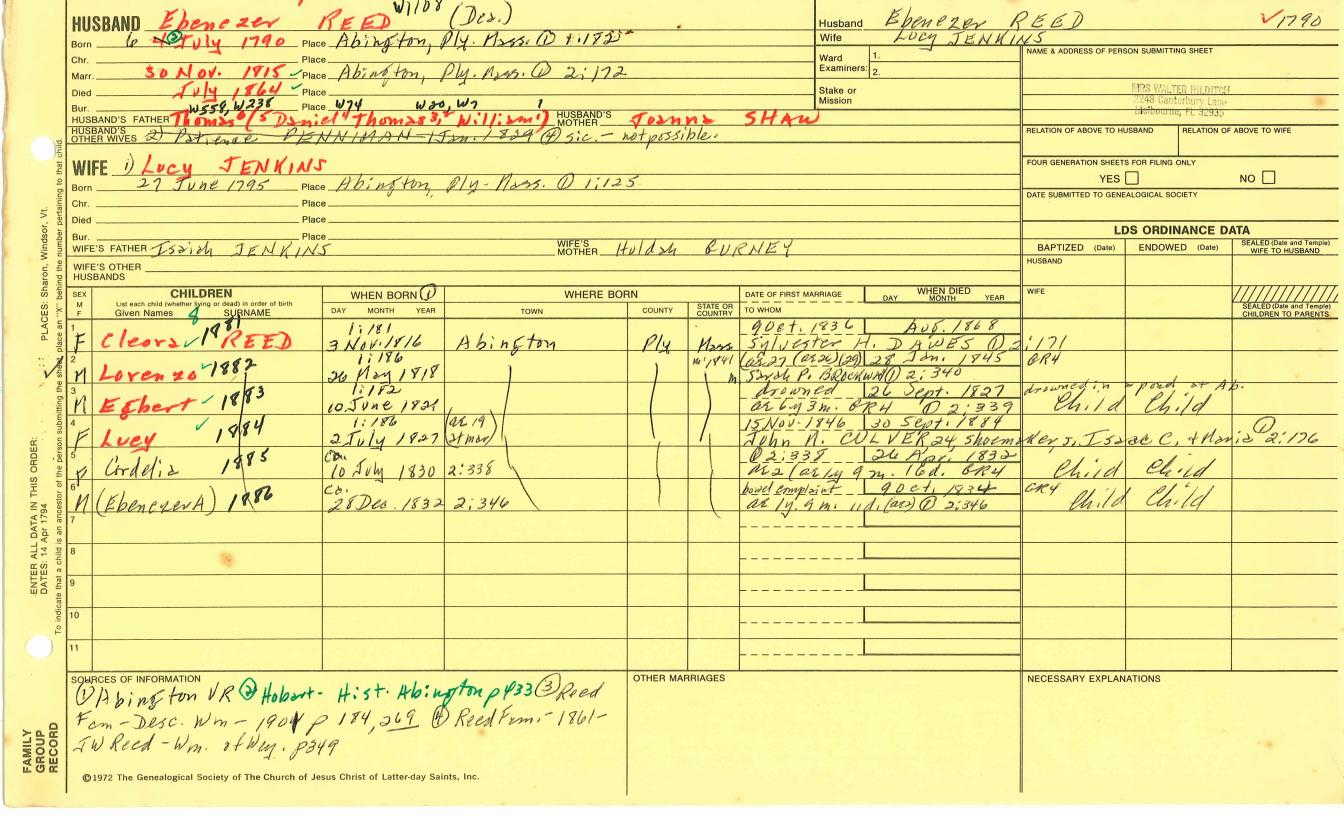 HUSBAND Ebenezer REED W1708 (Dea.)
Born 6 July 1790 Place Abington, Ply. Mass. ① 1:182
Chr. Place
Marr. 30 Nov. 1815 ✓ Place Abington, Ply. Mass. ① 2:172
Died July 1864 ✓ Place
Bur. W559, W238 Place W74 W20, W7 1
HUSBAND'S FATHER Thomas⁶ (⁵ Daniel⁴ Thomas³,² William¹) HUSBAND'S MOTHER Joanna SHAW
HUSBAND'S OTHER WIVES 2) Patience PENNIMAN 1 Jan. 1829 ④ sic. - not possible.
WIFE 1) Lucy JENKINS
Born 27 June 1795 Place Abington, Ply. Mass. ① 1:125
Chr. Place
Died Place
Bur. Place
WIFE'S FATHER Isaiah JENKINS WIFE'S MOTHER Huldah BURNEY
WIFE'S OTHER HUSBANDS
Husband Ebenezer REED ✓1790
Wife Lucy JENKINS
Ward Examiners: 1.
2.
Stake or Mission
NAME & ADDRESS OF PERSON SUBMITTING SHEET
MRS WALTER HILDITCH
2248 Canterbury Lane
Melbourne, FL 32935
RELATION OF ABOVE TO HUSBAND RELATION OF ABOVE TO WIFE
FOUR GENERATION SHEETS FOR FILING ONLY
YES NO
DATE SUBMITTED TO GENEALOGICAL SOCIETY
LDS ORDINANCE DATA
BAPTIZED (Date) ENDOWED (Date) SEALED (Date and Temple) WIFE TO HUSBAND
HUSBAND
WIFE
SEALED (Date and Temple) CHILDREN TO PARENTS
SEX M F CHILDREN WHEN BORN ① WHERE BORN DATE OF FIRST MARRIAGE WHEN DIED
List each child (whether living or dead) in order of birth
Given Names 8 SURNAME DAY MONTH YEAR TOWN COUNTY STATE OR COUNTRY TO WHOM DAY MONTH YEAR
1 1881 1:181 9 Oct. 1836 Aug. 1868
F Cleora ✓ REED 3 Nov. 1816 Abington Ply Mass Sylvester H. DAWES ① 2:171
2 1882 1:186 28 Jan. 1845 GR4
M Lorenzo ✓ 26 May 1818 Sarah P. BROCKWAY ① 2:340
3 1883 1:182 drowned 26 Sept. 1827 drowned in a pond at Ab.
M Egbert ✓ 10 June 1821 ae 6y 3m. GR4 ① 2:339 Child Child
4 ✓ 1884 1:186 (ae 19 at mar) 15 Nov. 1846 30 Sept. 1884
F Lucy 2 July 1827 John N. CULVER 24, shoemaker, s. Isaac C. & Maria ① 2:176
5 1885 ca. ① 2:338 26 Apr. 1832
F Cordelia 10 July 1830 2:338 ae 2 (ae 1y 9m. 16d. GR4 Child Child
6 1886 ca. bowel complaint 9 Oct. 1834 GR4
M (Ebenezer A) 28 Dec. 1832 2:346 ae 1y. 9m. 11d. (ae 2) ① 2:346 Child Child
7
8
9
10
11
SOURCES OF INFORMATION
① Abington VR ② Hobart - Hist. Abington p 433 ③ Reed
Fam - Desc. Wm - 1901 p 184, 269 ④ Reed Fam. - 1861 -
JW Reed - Wm. of Wey. p349
OTHER MARRIAGES
NECESSARY EXPLANATIONS
©1972 The Genealogical Society of The Church of Jesus Christ of Latter-day Saints, Inc.
FAMILY GROUP RECORD
ENTER ALL DATA IN THIS ORDER:
DATES: 14 Apr 1794 PLACES: Sharon, Windsor, Vt.
To indicate that a child is an ancestor of the person submitting the sheet, place an "X" behind the number pertaining to that child.